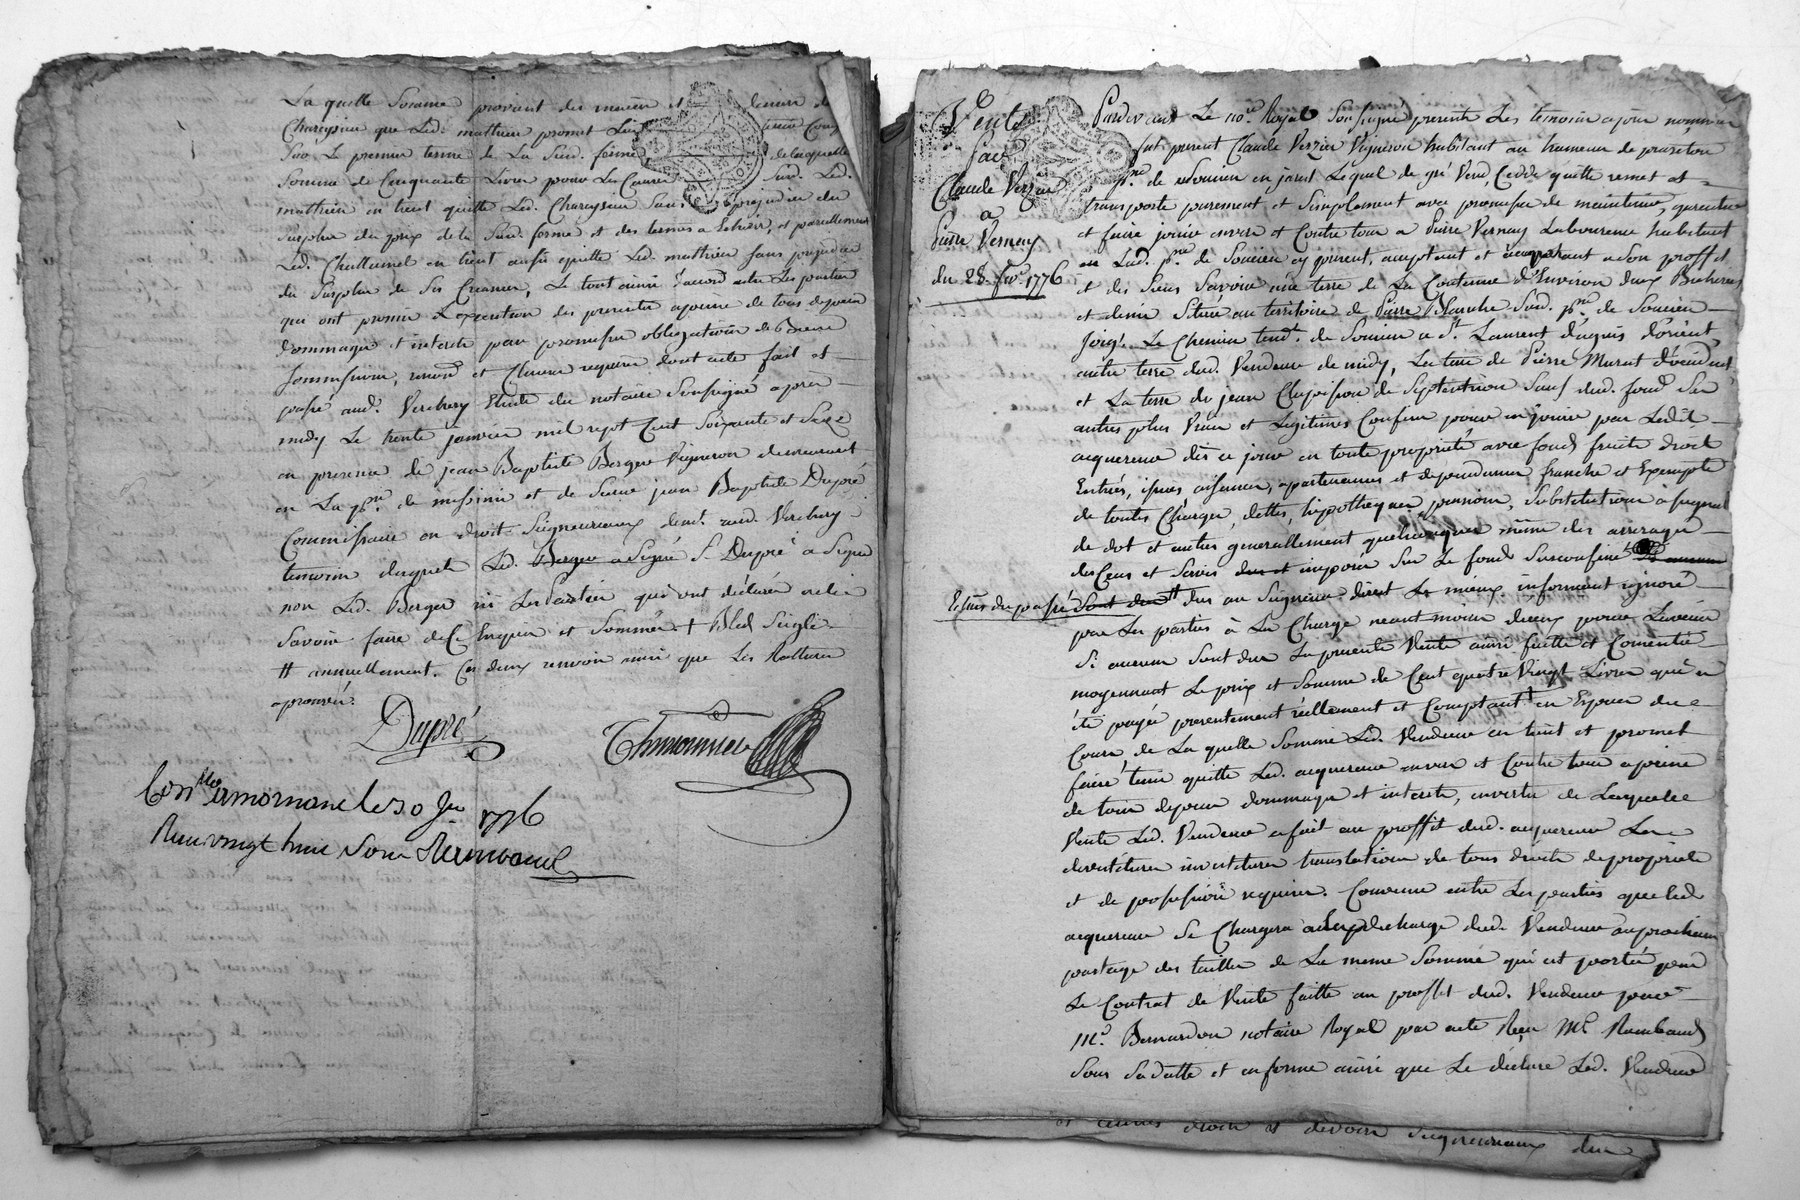 La quelle Somme provient des
Chareysieu que Led. mathieu promet
Sur Le premier terme de La Susd. ferme de laquelle
Somme de Cinquante Livres pour Les Causes Susd. Led.
mathieu en tient quitte Led. Chareysieu Sans prejudice du
Surplus du prix de la Susd. ferme et des termes a Echeoir, et pareillement
Led. Challumel en tient aussi quitte Led. mathieu sans prejudice
du Surplus de Ses Creances, Le tout ainsi Convenu entre Les parties
qui ont promis L'execution des presentes a peine de tous depens
dommages et interets par promesses obligations de Biens
Soumissions, renonc. et Clauses requises dont acte fait et
passé aud. Verchery Etude du notaire Soussigné apres
midy Le trente janvier mil sept Cent Soixante et Seize
en presence de jean Baptiste Berger Vigneron demeurant
en La psse. de messimi et de Sieur jean Baptiste Dupré
Commissaire en droits Seigneuriaux demt. aud. Verchery
temoins desquels Led. Berger a Signé Sr. Dupré a Signé
non Led. Berger ni Les Parties qui ont déclaré ne le
Savoir faire de Ce Enquis et Sommés. + Bled Seigle
# annuellement. Ces deux renvois ainsi que Les Ratures
aprouvés.
Dupré
Conlle a mornant le 30 Jer 1776
Recu vingt huit Sous Rambaud
Vente
par
Claude Verzier
a
Pierre Vernay
du 28. fev. 1776
Pardevant Le no.re Royal Soussigné presents Les temoins apres nommés
fut present Claude Verzier Vigneron habitant au hameau de
psse. de Soucieu en jarest Lequel de gré Vend, Cedde quitte remet et
transporte purement et Simplement avec promesse de maintenir, garentir
et faire jouir envers et Contre tous a Pierre Vernay Laboureur habitant
en Lad. psse. de Soucieu cy present, acceptant et acquerant a Son proffit
et des Siens Savoir une terre de La Contenue d'Environ deux Bicherees
et demie Située au territoire de Pierre Blanche Susd. psse. de Soucieu
joig. Le Chemin tendt. de Soucieu a St. Laurent d'agnis d'orient,
autre terre dud. Vendeur de midy, La terre de Pierre Murat d'occident
et La terre de jean de Septentrion Sauf dud. fond Ses
autres plus Vrais et Legitimes Confins pour en jouir par Ledit
acquereur dès ce jour en toute proprieté avec fonds fruits droits
Entrées, issues, aisances, apartenances et dependances franche et Exempte
de toutes Charges, dettes, hypotheques, pensions, Substitutions
de dot et autres generallement quelconques même des arrerages
des Cens et Servis imposés Sur Le fond Susconfiné
Echus du passé dus au Seigneur direct Le mieux informant ignoré
par Les parties à La Charge neantmoins d'iceux pour L'avenir
Si aucuns Sont dus La presente Vente ainsi faitte et Consentie
moyennant Le prix et Somme de Cent quatre Vingt Livres qui a
été payée presentement réellement et Comptant en Especes du
Cours de La quelle Somme Led. Vendeur en tient et promet
faire tenir quitte Led. acquereur envers et Contre tous a peine
de tous depens dommages et interets, en vertu de Laquelle
Vente Led. Vendeur a fait au proffit dud. acquereur Les
devestitures investitures translations de tous droits de proprieté
et de possession requises. Convenu entre Les parties que Led.
acquereur Se Chargera a La decharge dud. Vendeur au prochain
partage des tailles de La meme Somme qui est portée par
Le Contrat de Vente faitte au proffit dud. Vendeur par
Me. Bernardon notaire Royal par acte Reçu Me. Rambaud
Sous Sa datte et en forme ainsi que Le déclare Led. Vendeur
et autres droits et devoirs Seigneuriaux dus